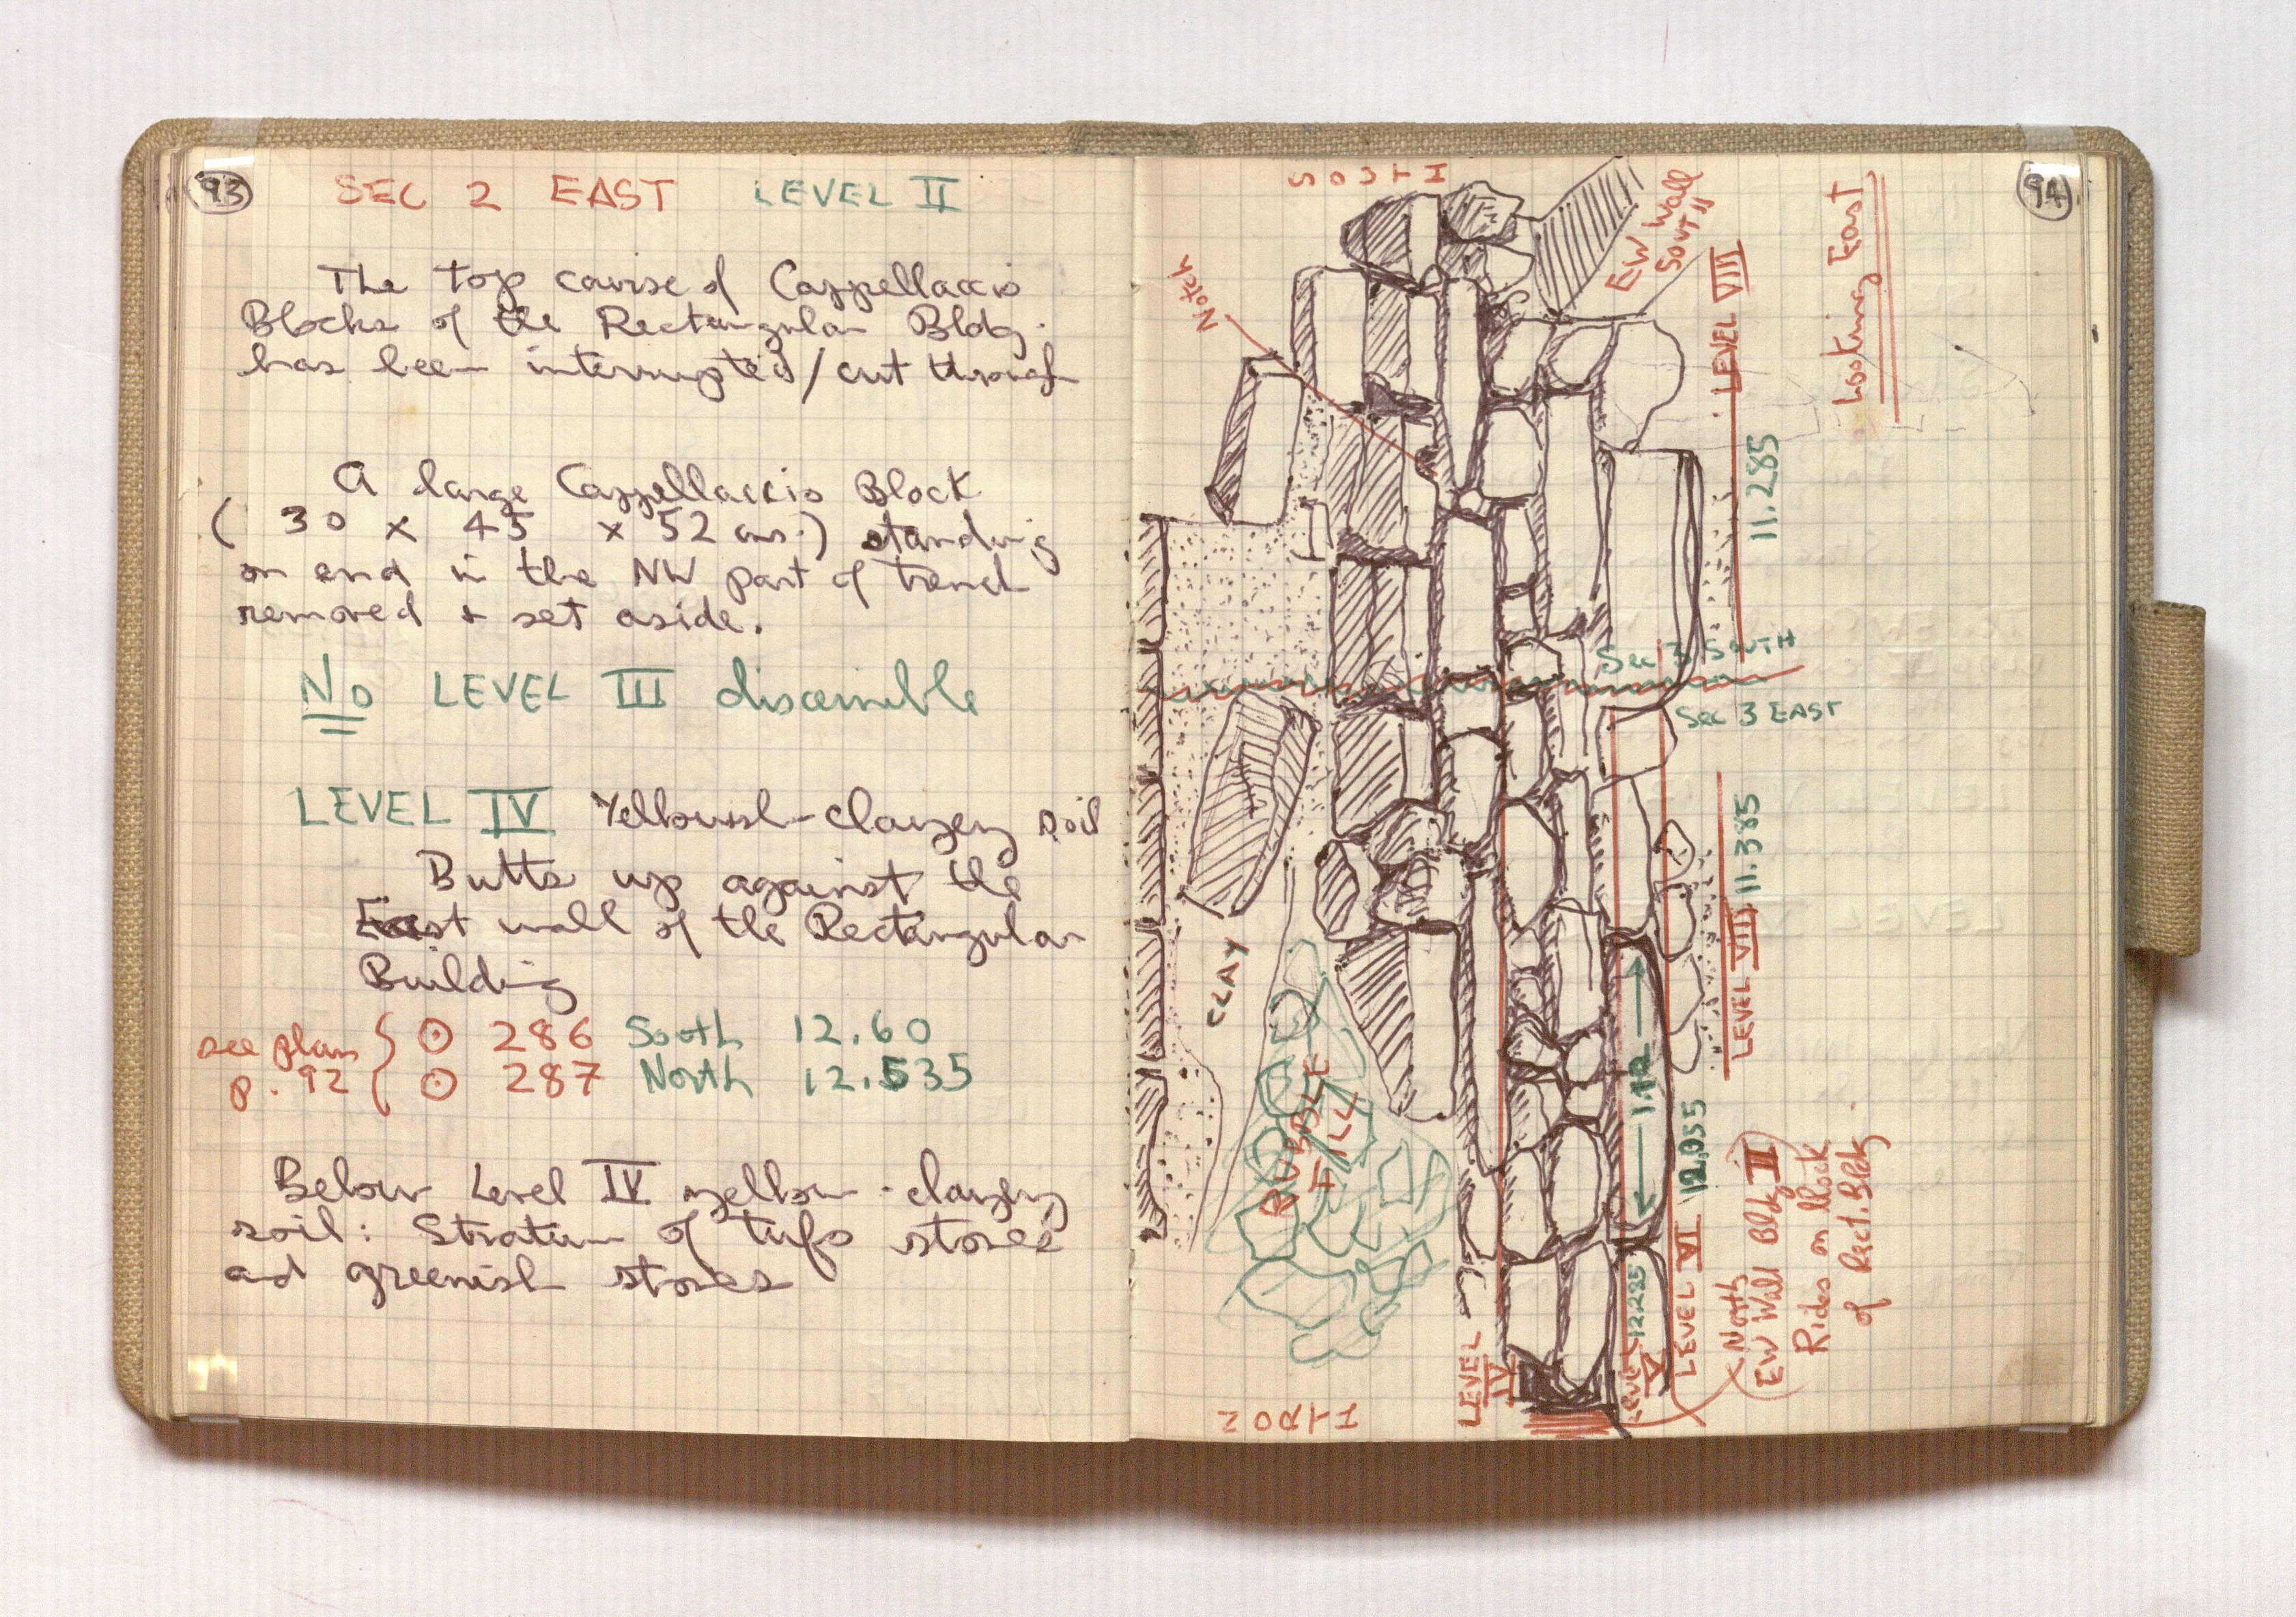 93
SEC 2 EAST LEVEL II
The top course of Cappellaccio
Blocks of the Rectangular Bldg.
has been interrupted/cut through
A large Cappellaccio Block
( 30 x 45 x 52 cms.) standing
on end in the NW part of trench
removed + set aside.
No LEVEL III discernible
LEVEL IV Yellowish-clayey soil
Butts up against the
East wall of the Rectangular
Building
see plan
p. 92
⊙ 286 South 12.60
⊙ 287 North 12.535
Below Level IV yellow-clayey
soil: Stratum of tufo stones
and greenish stones
94
SOUTH
Notch
EW Wall
SOUTH
LEVEL VIII
11.285
Looking East
Sec 3 SOUTH
Sec 3 EAST
CLAY
RUBBLE
FILL
LEVEL VIII 11.385
1.12
LEVEL VI 12.055
LEVEL V 12.225
LEVEL IV
North
EW Wall Bldg II
Rides on block
of Rect. Bldg.
NORTH